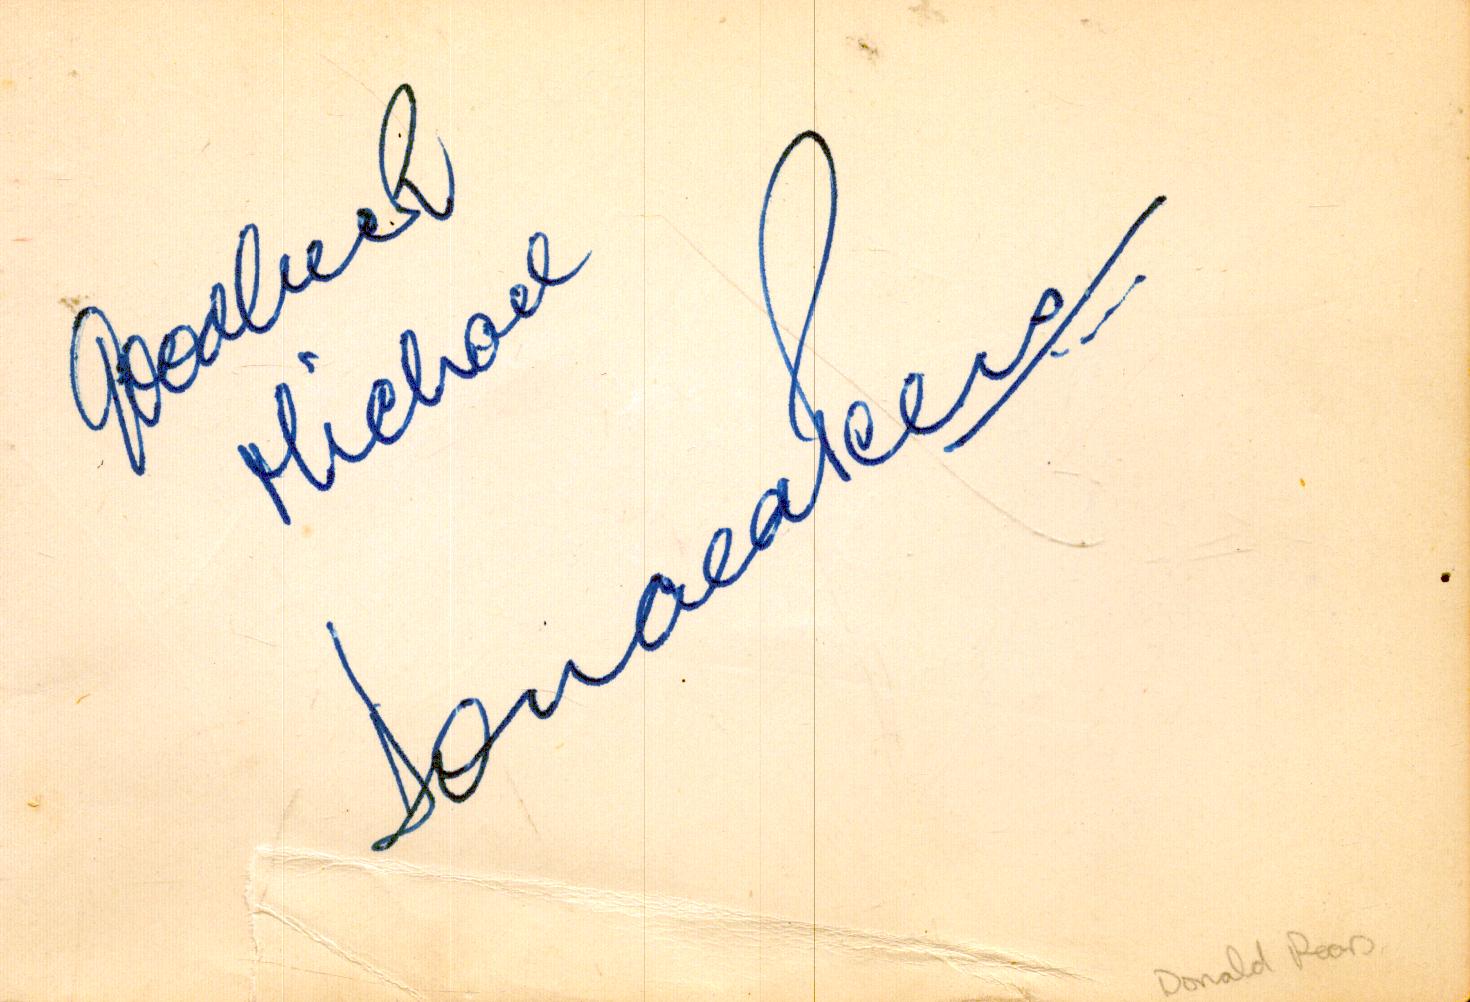 Goodluck
Michael
Donald Peers
Donald Peers